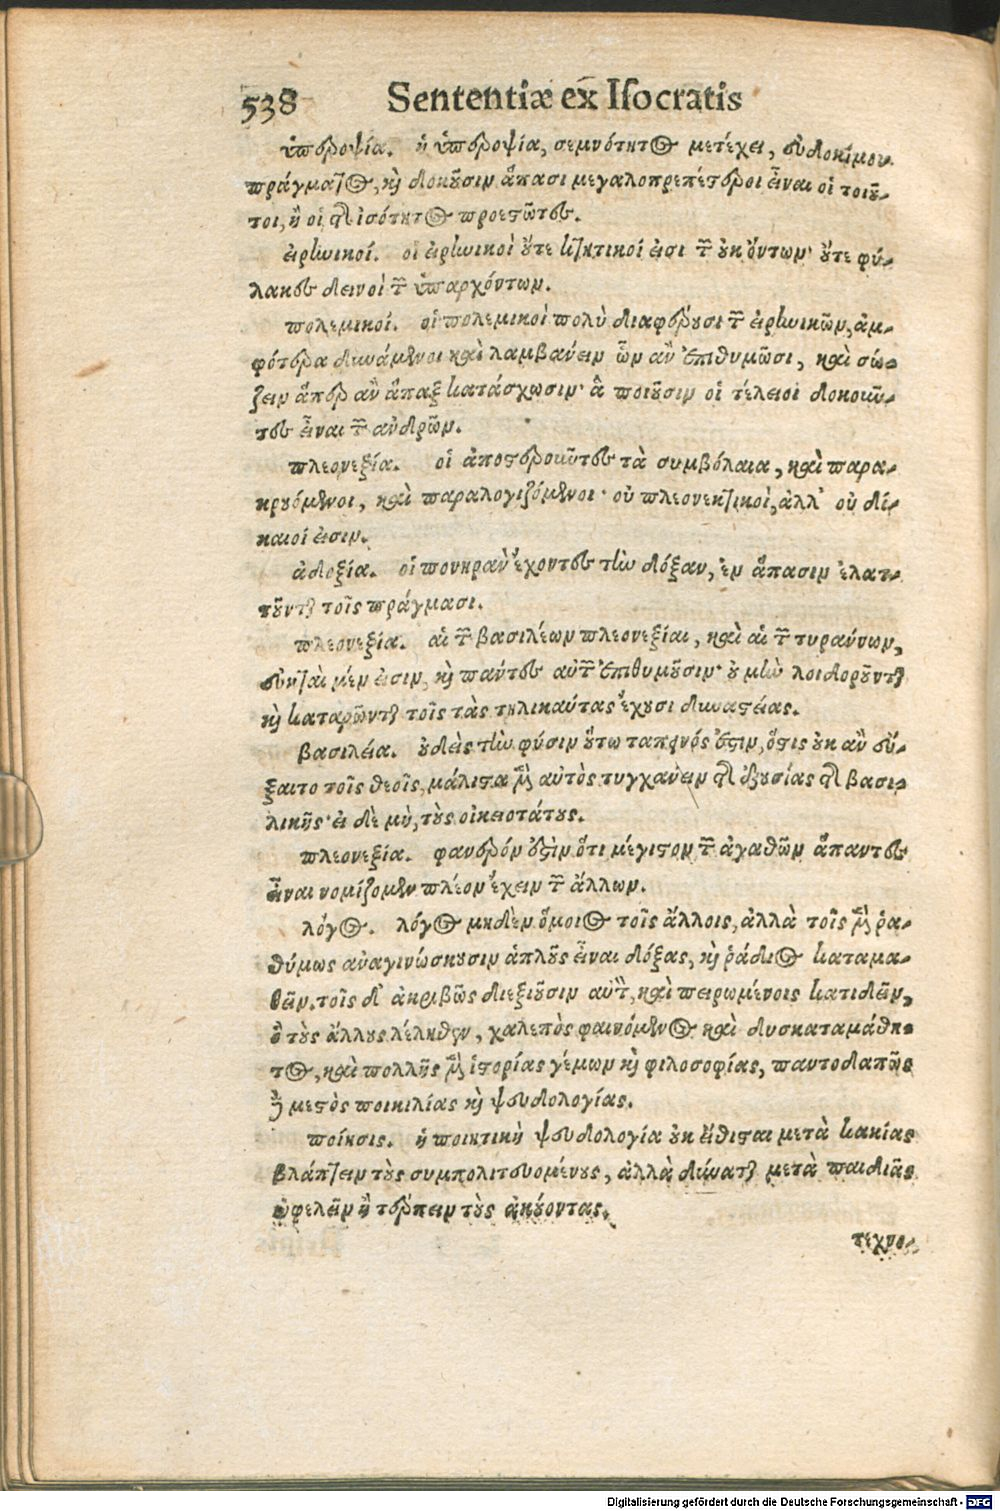 538 Sententiæ ex Isocratis
ὑπεροψία. ἡ ὑπεροψία, σεμνότητος μετέχει, εὐδοκίμου
πράγματος, καὶ δοκοῦσιν ἅπασι μεγαλοπρεπέστεροι εἶναι οἱ τοιοῦ-
τοι, ἢ οἱ τῆς ἰσότητος προεστῶτες.
εἰρηνικοί. οἱ εἰρηνικοὶ οὔτε κτητικοί εἰσι τῶν οὐκ ὄντων· οὔτε φύ-
λακες δεινοὶ τῶν ὑπαρχόντων.
πολεμικοί. οἱ πολεμικοὶ πολὺ διαφέρουσι τῶν εἰρηνικῶν, ἀμ-
φότερα δυνάμενοι καὶ λαμβάνειν ὧν ἂν ἐπιθυμῶσι, καὶ σώ-
ζειν ἅπερ ἂν ἅπαξ κατάσχωσιν· ἃ ποιοῦσιν οἱ τέλειοι δοκοῦν-
τες εἶναι τῶν ἀνδρῶν.
πλεονεξία. οἱ ἀποστεροῦντες τὰ συμβόλαια, καὶ παρα-
κρουόμενοι, καὶ παραλογιζόμενοι· οὐ πλεονεκτικοὶ, ἀλλ' οὐ δί-
καιοί εἰσιν.
ἀδοξία. οἱ πονηρὰν ἔχοντες τὴν δόξαν, ἐν ἅπασιν ἐλατ-
τοῦνται τοῖς πράγμασι.
πλεονεξία. αἱ τῶν βασιλέων πλεονεξίαι, καὶ αἱ τῶν τυράννων,
εὐκταὶ μέν εἰσιν, καὶ πάντες αὐτῶν ἐπιθυμοῦσιν· οὐ μὴν λοιδοροῦνται
καὶ καταρῶνται τοῖς τὰς τηλικαύτας ἔχουσι δυναστείας.
βασιλεία. οὐδεὶς τὴν φύσιν οὕτω ταπεινός ἐστιν, ὅστις οὐκ ἂν εὔ-
ξαιτο τοῖς θεοῖς, μάλιστα μὲν αὐτὸς τυγχάνειν τῆς ἐξουσίας τῆς βασι-
λικῆς· εἰ δὲ μὴ, τοὺς οἰκειοτάτους.
πλεονεξία. φανερόν ἐστιν ὅτι μέγιστον τῶν ἀγαθῶν ἅπαντες
εἶναι νομίζομεν πλέον ἔχειν τῶν ἄλλων.
λόγος. λόγος μηδὲν ὅμοιος τοῖς ἄλλοις, ἀλλὰ τοῖς μὲν ῥα-
θύμως ἀναγινώσκουσιν ἁπλοῦς εἶναι δόξας, καὶ ῥάδιος καταμα-
θεῖν. τοῖς δ' ἀκριβῶς διεξιοῦσιν αὐτὸν, καὶ πειρωμένοις κατιδεῖν,
ὃ τοὺς ἄλλους λέληθεν, χαλεπὸς φαινόμενος καὶ δυσκαταμάθη-
τος, καὶ πολλῆς μὲν ἱστορίας γέμων καὶ φιλοσοφίας, παντοδαπῶς
δὲ μεστὸς ποικιλίας καὶ ψευδολογίας.
ποίησις. ἡ ποιητικὴ ψευδολογία οὐκ εἴθισται μετὰ κακίας
βλάπτειν τοὺς συμπολιτευομένους, ἀλλὰ δύναται μετὰ παιδιᾶς
ὠφελεῖν ἢ τέρπειν τοὺς ἀκούοντας.
τεχνο-
Digitalisierung gefördert durch die Deutsche Forschungsgemeinschaft - DFG